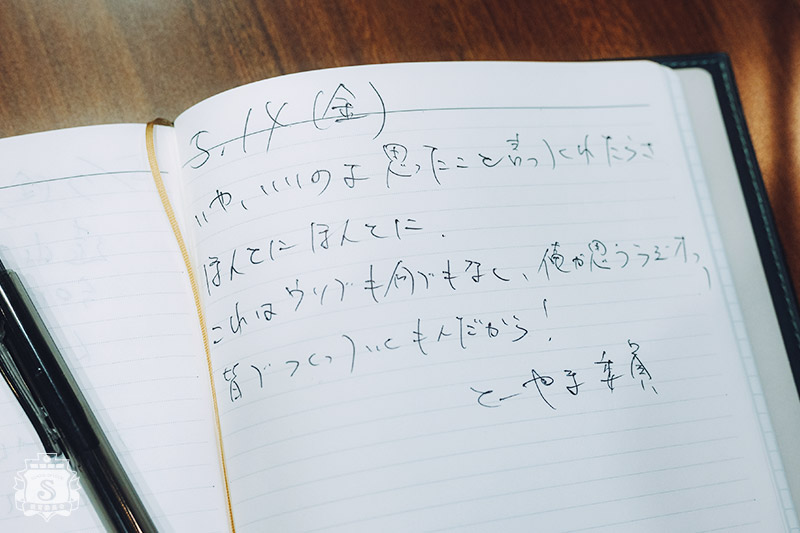 5.14(金)
いや、いいのよ 思ったこと言ってくれたらさ
ほんとにほんとに.
これはウソでも何でもなく、俺が思うラジオって
皆でつくっていくもんだから!
とーやま委員
S